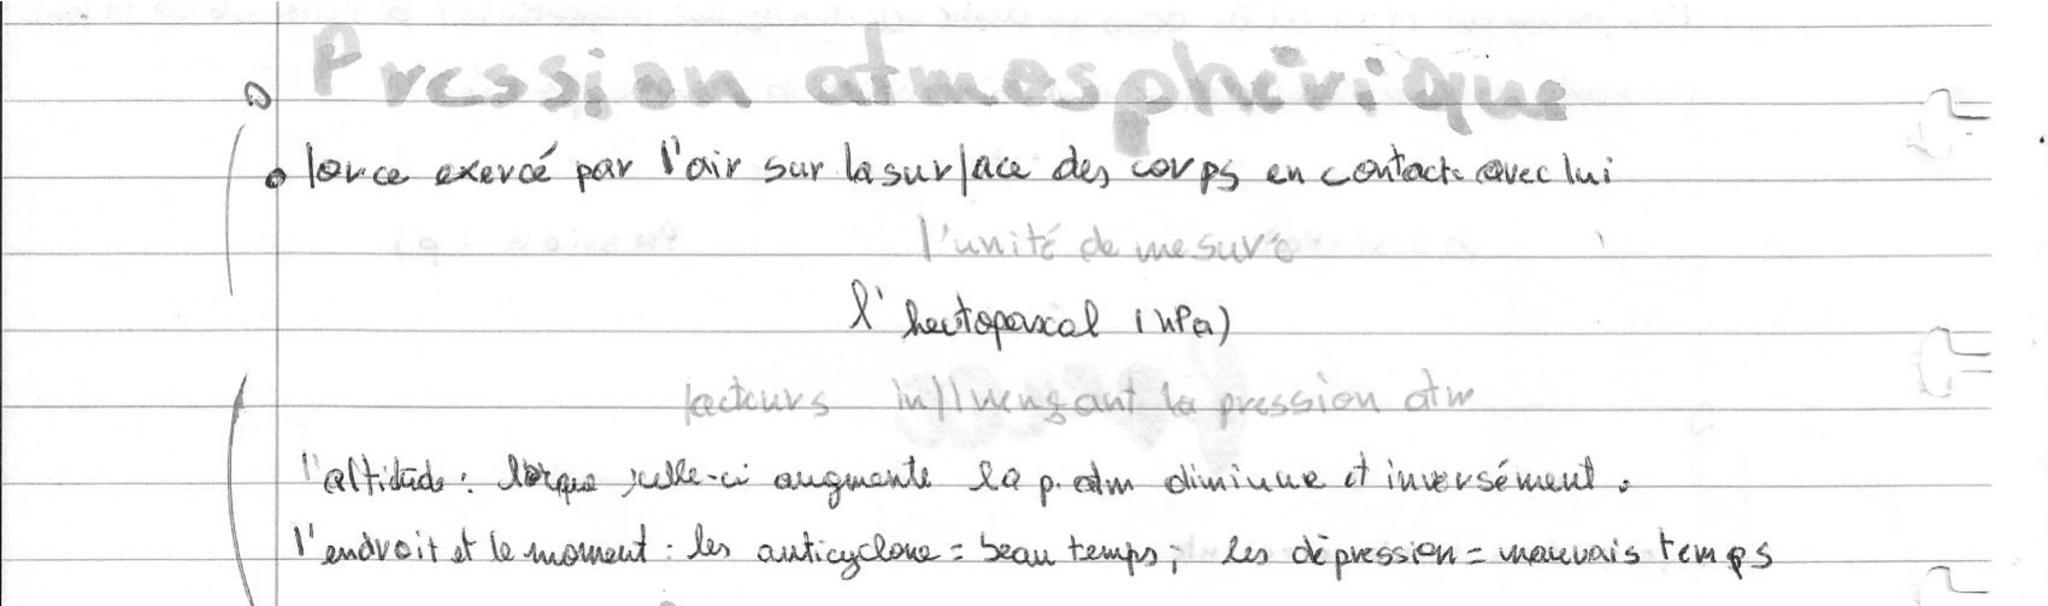 Pression atmosphérique
force exercé par l'air sur la surface des corps en contacte avec lui
l'unité de mesure
l'hectopascal (hPa)
facteurs influençant la pression atm
l'altitude : lorque celle-ci augmente la p. atm diminue et inversément.
l'endroit et le moment : les anticyclone = beau temps ; les dépression = mauvais temps